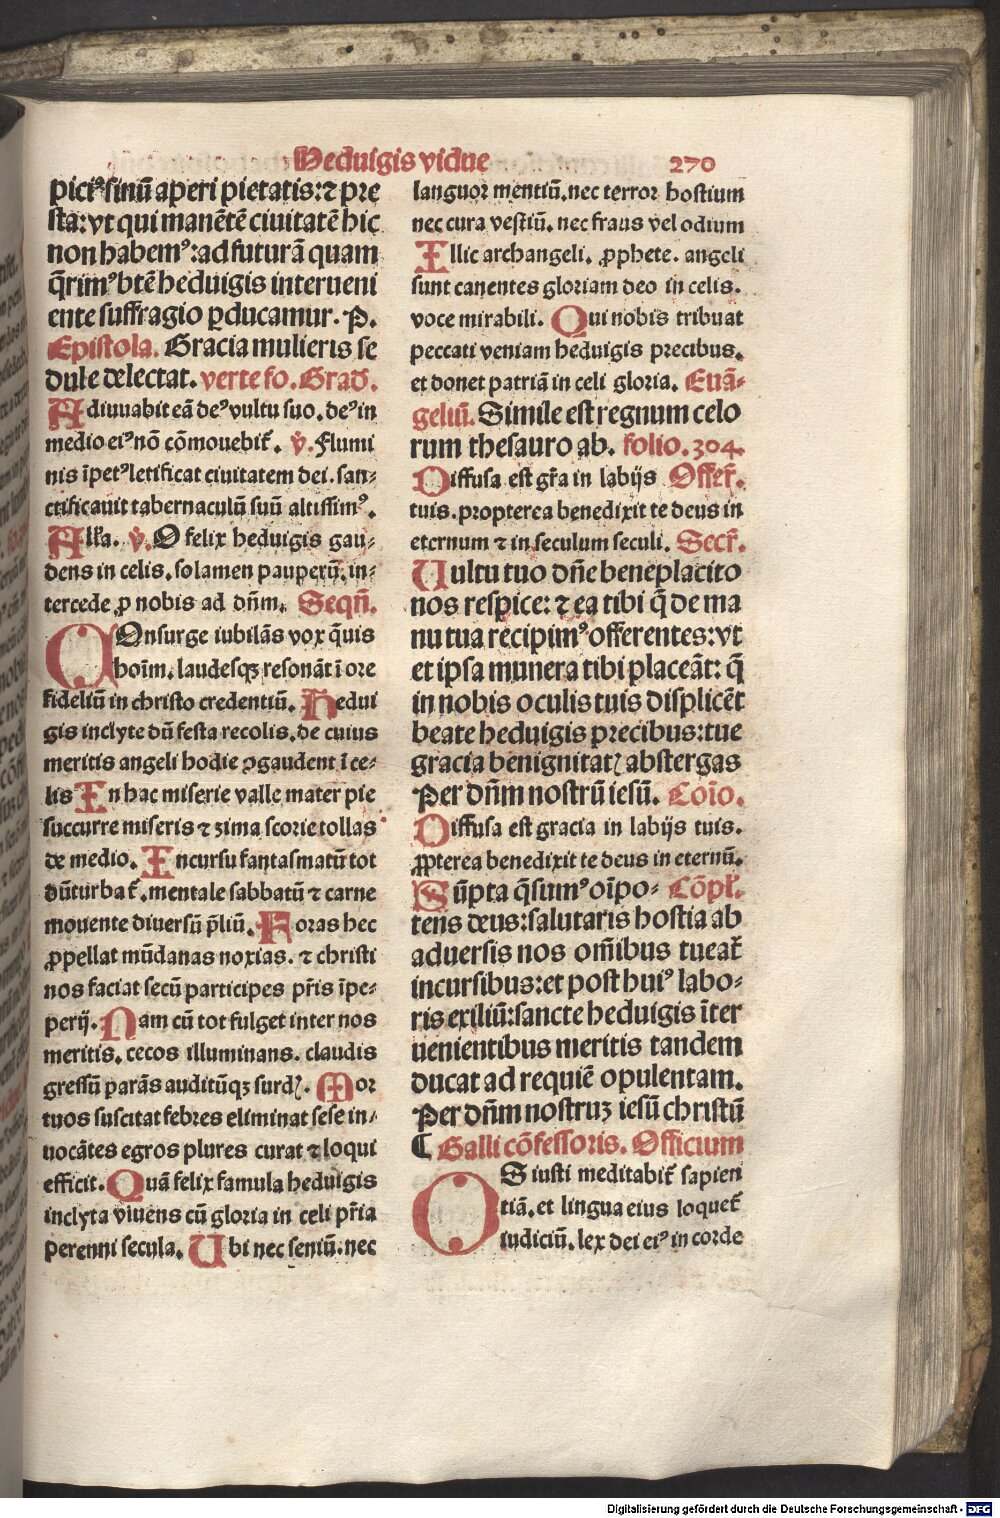 Heduigis vidue 270
piciꝰ sinū aperi pietatis: ⁊ pre
sta: vt qui manētē ciuitatē hic
non habemꝰ: ad futurā quam
q̄rimꝰ btē heduigis interueni
ente suffragio ꝑducamur. P.
Epistola. Gracia mulieris se
dule delectat. verte fo. Grad̄.
Adiuuabit eā deꝰ vultu suo. deꝰ in
medio eiꝰ nō cōmouebit̄. v̄. Flumi
nis īpetꝰ letificat ciuitatem dei. san-
ctificauit tabernaculū suū altissimꝰ.
All̄a. v̄. O felix heduigis gau-
dens in celis. solamen pauperū. in-
tercede ꝓ nobis ad dn̄m. Seqn̄.
COnsurge iubilās vox q̄uis
hoīm. laudesqꝫ resonāt ī ore
fideliū in christo credentiū. Hedui
gis inclyte dū festa recolis. de cuius
meritis angeli hodie ꝯgaudent ī ce-
lis In hac miserie valle mater pie
succurre miseris ⁊ zima scorie tollas
de medio. Incursu fantasmatū tot
dū turbat̄. mentale sabbatū ⁊ carne
mouente diuersū p̄liū. Foras hec
ꝓpellat mūdanas noxias. ⁊ christi
nos faciat secū participes pr̄is īpe-
perij. Nam cū tot fulget inter nos
meritis. cecos illuminans. claudis
gressū parās auditūqꝫ surdꝭ. Mor
tuos suscitat febres eliminat sese in-
uocātes egros plures curat ⁊ loqui
efficit. Quā felix famula heduigis
inclyta viuens cū gloria in celi pr̄ia
perenni secula. Ubi nec seniū. nec
languor mentiū. nec terror hostium
nec cura vestiū. nec fraus vel odium
Illic archangeli. ꝓphete. angeli
sunt canentes gloriam deo in celis.
voce mirabili. Qui nobis tribuat
peccati veniam heduigis precibus.
et donet patriā in celi gloria. Euā-
geliū. Simile est regnum celo
rum thesauro ab. folio. 304.
Diffusa est gr̄a in labijs Offer̄.
tuis. propterea benedixit te deus in
eternum ⁊ in seculum seculi. Secr̄.
Uultu tuo dn̄e beneplacito
nos respice: ⁊ ea tibi q̄ de ma
nu tua recipimꝰ offerentes: vt
et ipsa munera tibi placeāt: q̄
in nobis oculis tuis displicēt
beate heduigis precibus: tue
gracia benignitatꝭ abstergas
Per dn̄m nostrū iesū. Cōio.
Diffusa est gracia in labijs tuis.
ꝓpterea benedixit te deus in eternū.
Sūpta q̄sumꝰ oīpo- Cōpl̄.
tens deus: salutaris hostia ab
aduersis nos om̄ibus tueat̄
incursibus: et post huiꝰ labo-
ris exiliū: sancte heduigis īter
uenientibus meritis tandem
ducat ad requiē opulentam.
Per dn̄m nostruꝫ iesū christū
¶ Galli cōfessoris. Officium
OS iusti meditabit̄ sapien
tiā. et lingua eius loquet̄
iudiciū. lex dei eiꝰ in corde
Digitalisierung gefördert durch die Deutsche Forschungsgemeinschaft - DFG